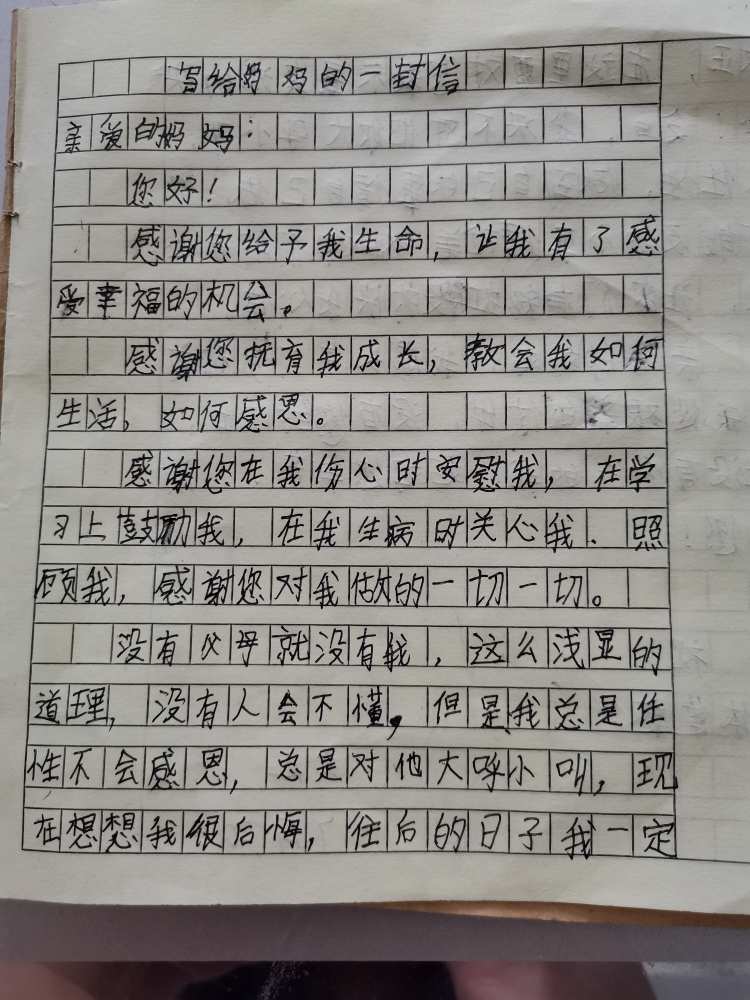 写给妈妈的一封信
亲爱的妈妈：
您好！
感谢您给予我生命，让我有了感
受幸福的机会。
感谢您抚育我成长，教会我如何
生活，如何感恩。
感谢您在我伤心时安慰我，在学
习上鼓励我，在我生病时关心我．照
顾我，感谢您对我做的一切一切。
没有父母就没有我，这么浅显的
道理，没有人会不懂，但是我总是任
性不会感恩，总是对他大呼小叫，现
在想想我很后悔，往后的日子我一定